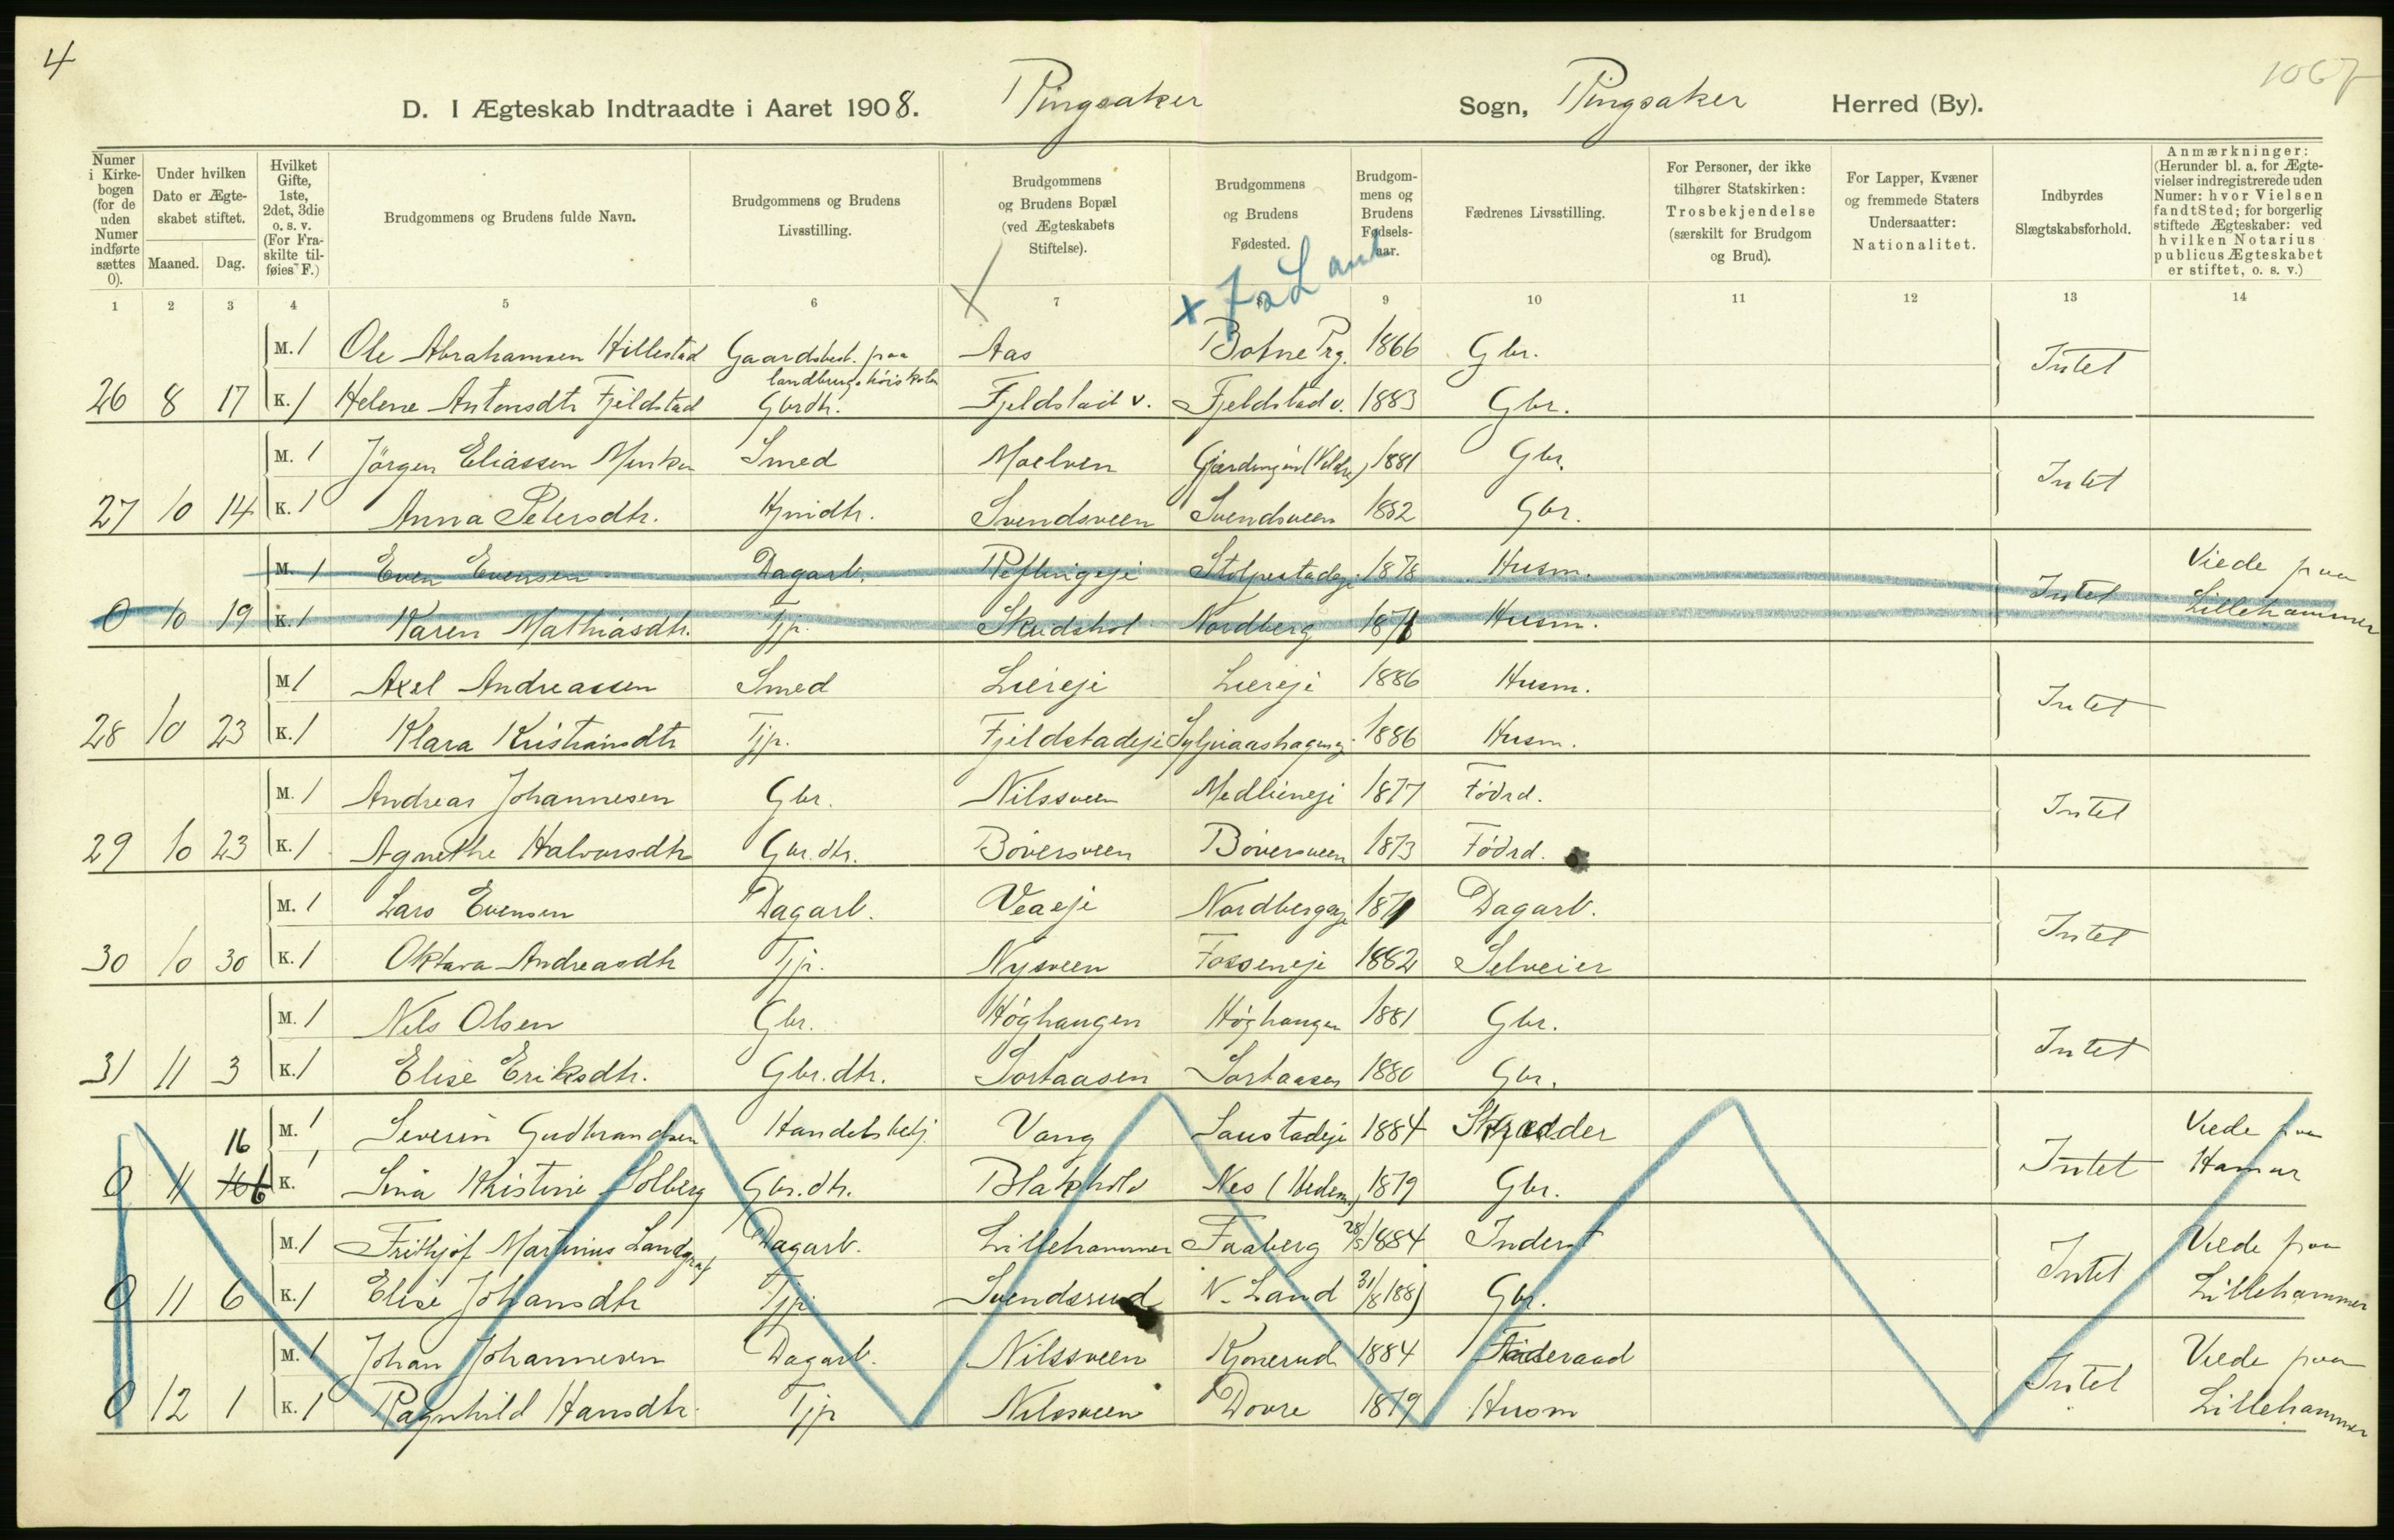 4
1067
D. I Ægteskab Indtraadte i Aaret 1908. Ringsaker Sogn, Ringsaker Herred (By).
Numer i Kirkebogen (for de uden Numer indførte sættes 0).
Under hvilken Dato er Ægteskabet stiftet.
Maaned. Dag.
Hvilket Gifte, 1ste, 2det, 3die o. s. v. (For Fraskilte tilføies F.)
Brudgommens og Brudens fulde Navn.
Brudgommens og Brudens Livsstilling.
Brudgommens og Brudens Bopæl (ved Ægteskabets Stiftelse).
Brudgommens og Brudens Fødested.
Brudgommens og Brudens Fødselsaar.
Fædrenes Livsstilling.
For Personer, der ikke tilhører Statskirken: Trosbekjendelse (særskilt for Brudgom og Brud).
For Lapper, Kvæner og fremmede Staters Undersaatter: Nationalitet.
Indbyrdes Slægtskabsforhold.
Anmærkninger: (Herunder bl. a. for Ægtevielser indregistrerede uden Numer: hvor Vielsen fandt Sted; for borgerlig stiftede Ægteskaber: ved hvilken Notarius publicus Ægteskabet er stiftet, o. s. v.)
1 2 3 4 5 6 7 8 9 10 11 12 13 14
M. 1 Ole Abrahamsen Hillestad Gaardsbest. paa landbrugshöiskolen Aas Botne Prg. 1866 Gbr. Intet
26 8 17 K. 1 Helene Antonsdtr Fjeldstad Gbrdtr. Fjeldstad v. Fjeldstad v. 1883 Gbr.
M. 1 Jörgen Eliassen Smed Moelven 1881 Gbr. Intet
27 10 14 K. 1 Anna Petersdtr. Svendsveen Svendsveen 1882 Gbr.
M. 1 Even Evensen Dagarb. Stolpestadeje 1878 Husm. Intet Viede paa
0 10 19 K. 1 Karen Mathiasdtr. Tjp. Skudshol Nordberg 1871 Husm. Lillehammer
M. 1 Axel Andreassen Smed Liereje Liereje 1886 Husm. Intet
28 10 23 K. 1 Klara Kristiansdtr Tjp. Fjeldstadeje 1886 Husm.
M. 1 Andreas Johannesen Gbr. Nilssveen Medlieneje 1877 Födrd. Intet
29 10 23 K. 1 Agnethe Halvorsdtr Gbr.dtr. Böversveen Böversveen 1873 Födrd.
M. 1 Lars Evensen Dagarb. Veaeje Nordbergseje 1871 Dagarb. Intet
30 10 30 K. 1 Oktava Andreasdtr Tjp. Nysveen Fosseneje 1882 Selveier
M. 1 Nils Olsen Gbr. Höghaugen Höghaugen 1881 Gbr. Intet
31 11 3 K. 1 Elise Eriksdtr. Gbr.dtr. Sortaasen Sortaasen 1880 Gbr.
16 M. 1 Severin Gudbrandsen Handelsbetj. Vang Saustadeje 1884 Skrædder Intet Viede paa
0 11 6 K. 1 Lina Kristine Solberg Gbr.dtr. Blakhold Nes (Hedem.) 1879 Gbr. Hamar
M. 1 Frithjof Martinius Landgraf Dagarb. Lillehammer Faaberg 28/5 1884 Inderst Intet Viede paa
0 11 6 K. 1 Elise Johansdtr Tjp. Svendsrud N. Land 31/8 1881 Gbr. Lillehammer
M. 1 Johan Johannesen Dagarb. Nilssveen Kjonerud 1884 Föderaad Intet Viede paa
0 12 1 K. 1 Ragnhild Hansdtr. Tjp Nilssveen Dovre 1879 Husm Lillehammer